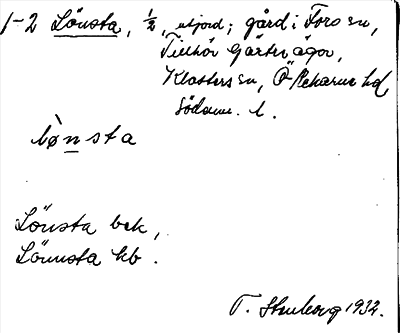 1-2 Lönsta, ½, utjord; gård i Fors sn,
Tillhör Gärsters ägor,
Klosters sn, Ö Rekarne hd,
Söderm. l.
lø̀nsta
Lönsta bek,
Lönnsta kb.
T. Stenberg 1932.